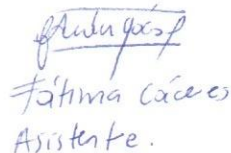 Fátima Cáceres
Asistente.